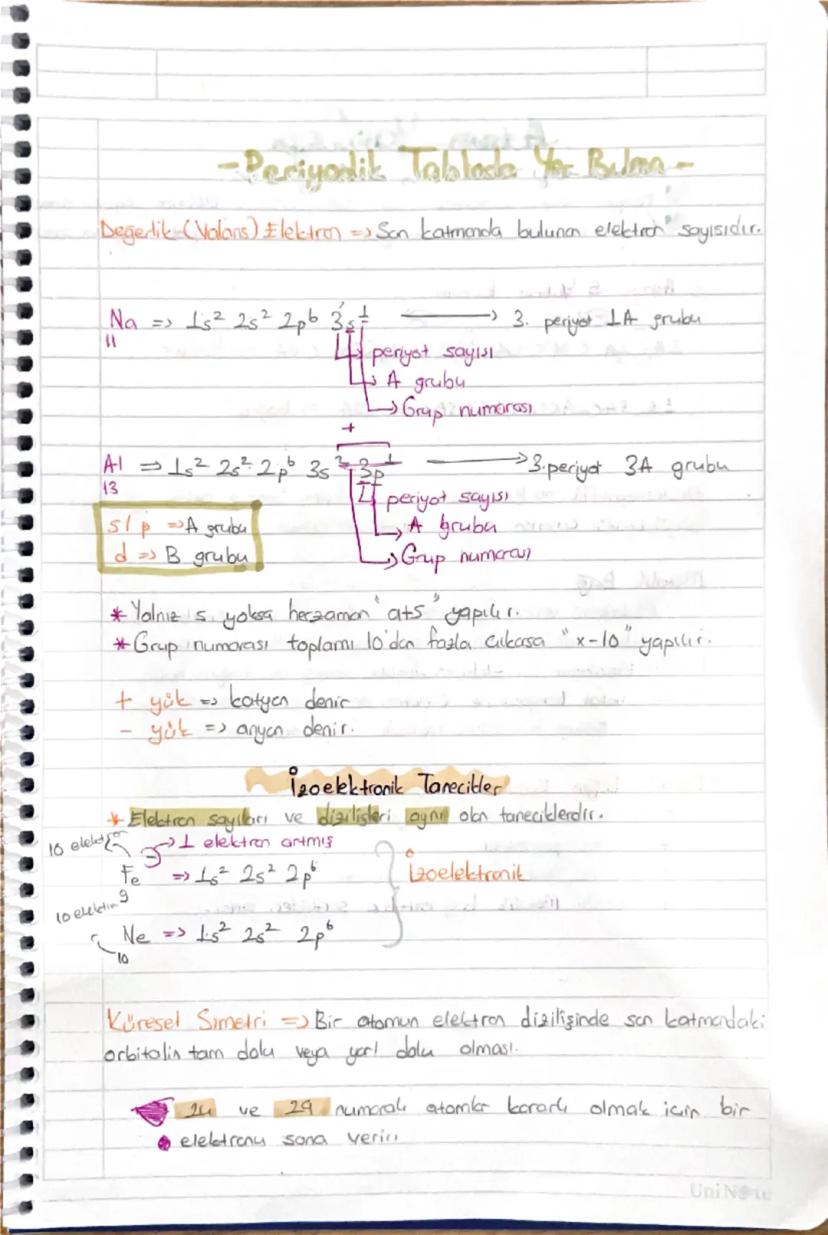 - Periyodik Tabloda Yer Bulma -
Değerlik (Valans) Elektron => Son katmanda bulunan elektron sayısıdır.
Na => 1s² 2s² 2p⁶ 3s¹ → 3. periyot 1A grubu
11
periyot sayısı
A grubu
Grup numarası
+
Al => 1s² 2s² 2p⁶ 3s² 3p¹ → 3.periyot 3A grubu
13
periyot sayısı
s/p => A grubu
A grubu
d => B grubu
Grup numarası
* Yalnız s yoksa herzaman "a+s" yapılır.
* Grup numarası toplamı 10'dan fazla çıkasa "x-10" yapılır.
+ yük => katyon denir
- yük => anyon denir.
İzoelektronik Tanecikler
* Elektron sayıları ve dizilişleri aynı olan taneciklerdir.
10 elektron
1 elektron artmış
Fe => 1s² 2s² 2p⁶
İzoelektronik
9
10 elektron
Ne => 1s² 2s² 2p⁶
10
Küresel Simetri => Bir atomun elektron dizilişinde son katmandaki
orbitalin tam dolu veya yarı dolu olması.
24 ve 29 numaralı atomlar kararlı olmak için bir
elektronu sona verir